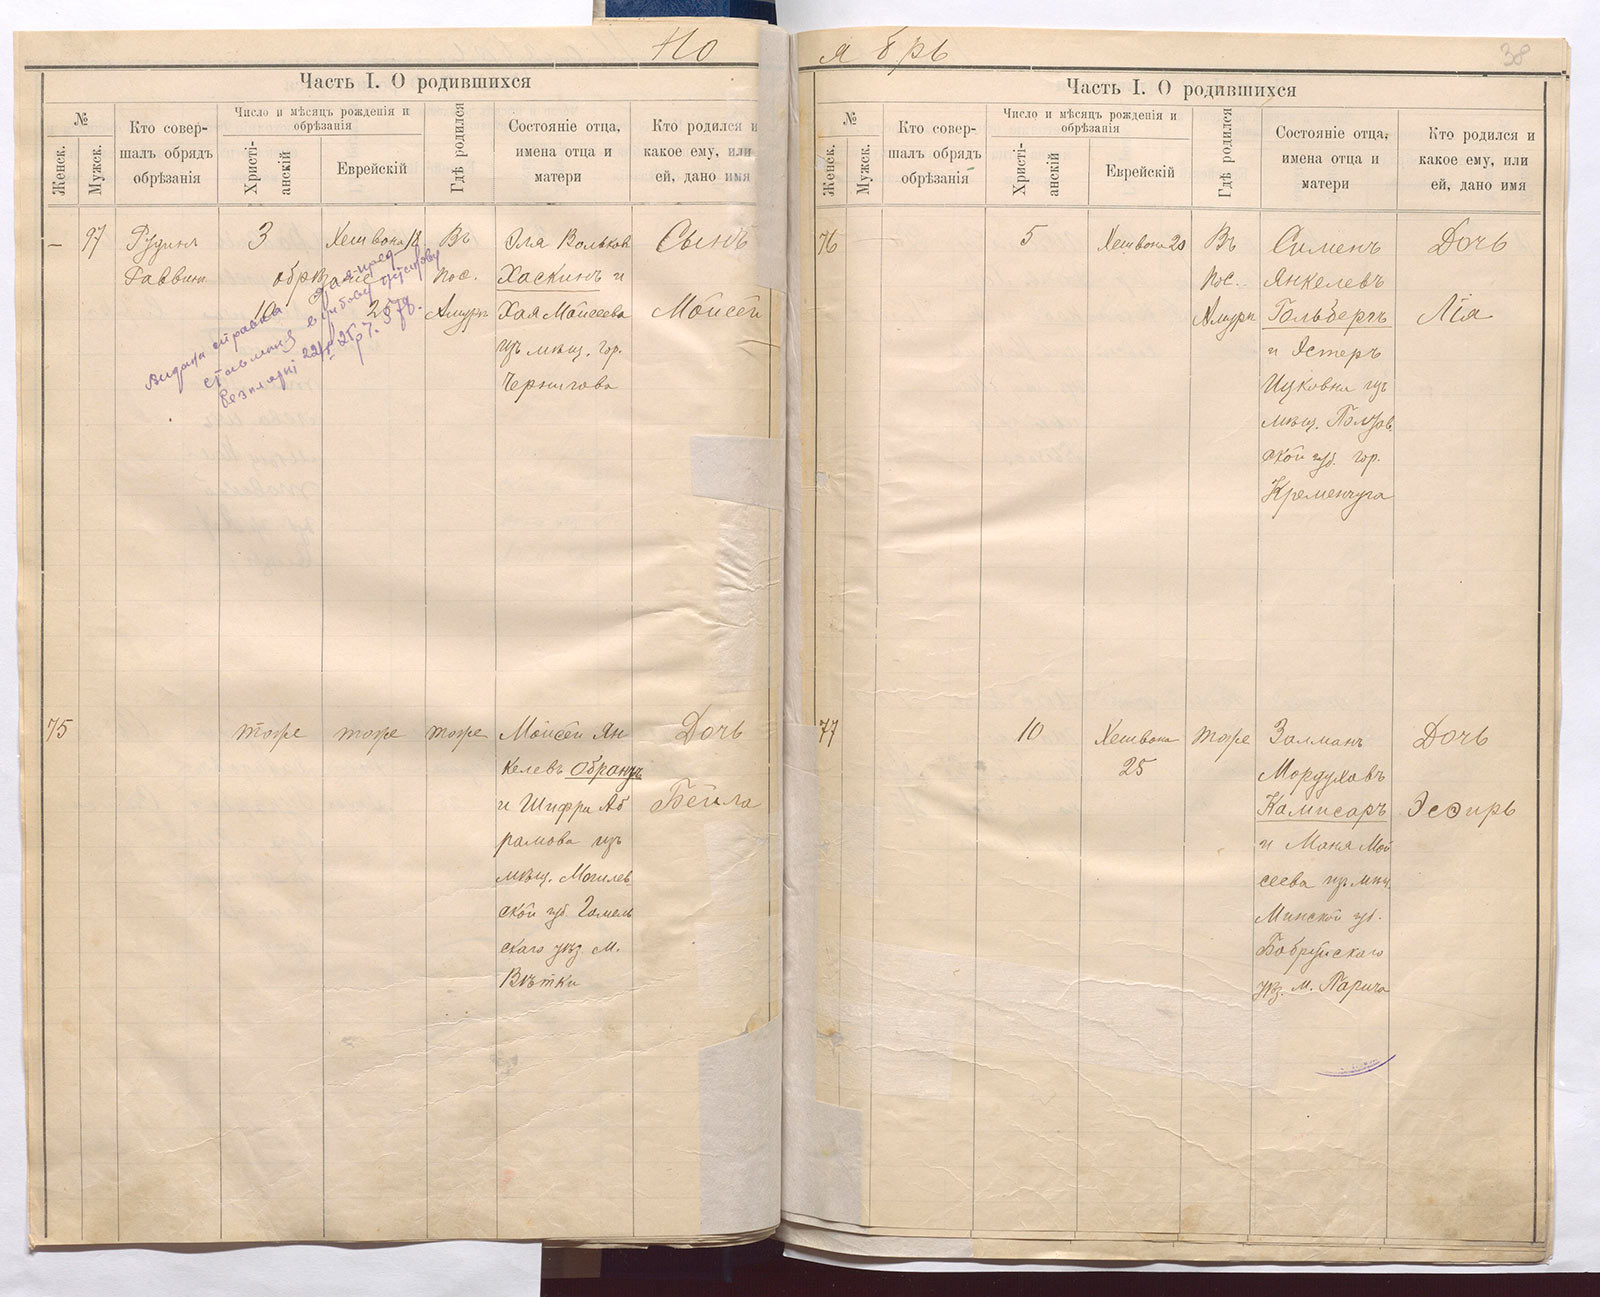 Но
Часть I. О родившихся
№
Женск.
Мужск.
Кто совер-
шалъ обрядъ
обрѣзанія
Число и мѣсяцъ рожденія и
обрѣзанія
Христі-
анскій
Еврейскій
Гдѣ родился
Состояніе отца,
имена отца и
матери
Кто родился и
какое ему, или
ей, дано имя
— 97
Раввинъ
3
обрѣзаніе
10
Хешвона 18
25
Въ
пос.
Амурѣ
Эля Вольковъ
Хаскинъ и
Хая Мойсеева
изъ мѣщ. гор.
Чернигова
Сынъ
Мойсей
Видана справка
22/IV 25 р.
75
тоже
тоже
тоже
Мойсей Ян
келевъ Обранцъ
и Шифра Аб
рамова изъ
мѣщ. Могилев
ской губ. Гомель
скаго уѣз. м.
Вѣтки
Дочь
Бейла
ябрь
38
Часть I. О родившихся
№
Женск.
Мужск.
Кто совер-
шалъ обрядъ
обрѣзанія
Число и мѣсяцъ рожденія и
обрѣзанія
Христі-
анскій
Еврейскій
Гдѣ родился
Состояніе отца,
имена отца и
матери
Кто родился и
какое ему, или
ей, дано имя
76
5
Хешвона 20
Въ
пос.
Амурѣ
Сименъ
Янкелевъ
Гольбергъ
и Эстеръ
Ицковна изъ
мѣщ. Полтав
ской губ. гор.
Кременчуга
Дочь
Лія
77
10
Хешвона
25
тоже
Залманъ
Мордуховъ
Камисаръ
и Маня Мой
сеева изъ мѣщ.
Минской губ.
Бобруйскаго
уѣз. м. Парича
Дочь
Эсѳирь